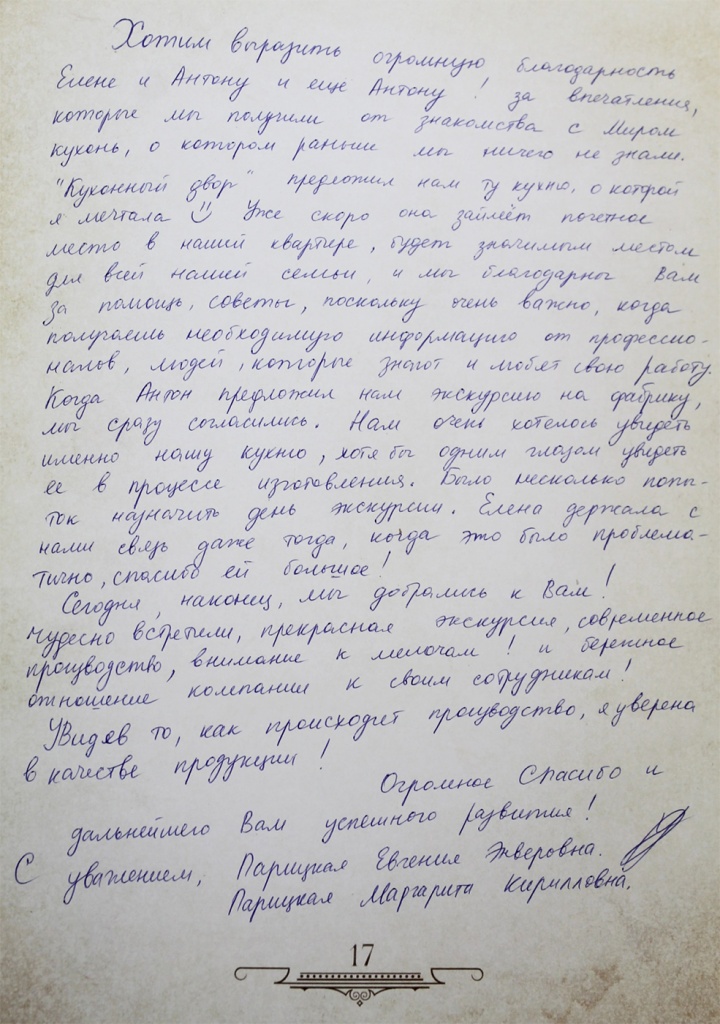 Хотим выразить огромную благодарность
Елене и Антону и ещё Антону! за впечатления,
которые мы получили от знакомства с Миром
кухонь, о котором раньше мы ничего не знали.
"Кухонный двор" предложил нам ту кухню, о которой
я мечтала Уже скоро она займёт почетное
место в нашей квартире, будет значимым местом
для всей нашей семьи, и мы благодарны Вам
за помощь, советы, поскольку очень важно, когда
получаешь необходимую информацию от профессио-
налов, людей, которые знают и любят свою работу.
Когда Антон предложил нам экскурсию на фабрику,
мы сразу согласились. Нам очень хотелось увидеть
именно нашу кухню, хотя бы одним глазом увидеть
ее в процессе изготовления. Было несколько попы-
ток назначить день экскурсии. Елена держала с
нами связь даже тогда, когда это было проблема-
тично, спасибо ей большое!
Сегодня, наконец, мы добрались к Вам!
Чудесно встретили, прекрасная экскурсия, современное
производство, внимание к мелочам! и бережное
отношение компании к своим сотрудникам!
Увидев то, как происходит производство, я уверена
в качестве продукции!
Огромное Спасибо и
дальнейшего Вам успешного развития!
С уважением, Парицкая Евгения
Парицкая Маргарита Кирилловна.
17